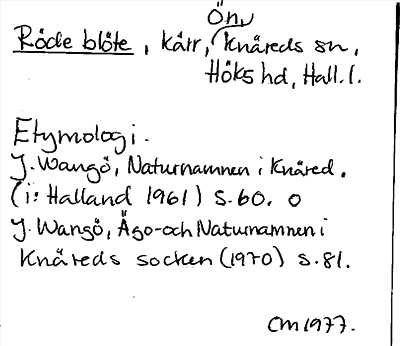 Ön,
Röde blöte, kärr, Knäreds sn,
Höks hd, Hall. l.
Etymologi.
J. Wangö, Naturnamnen i Knäred.
(i: Halland 1961) s. 60. o
J. Wangö, Ägo- och Naturnamnen i
Knäreds socken (1970) s. 81.
CM 1977.